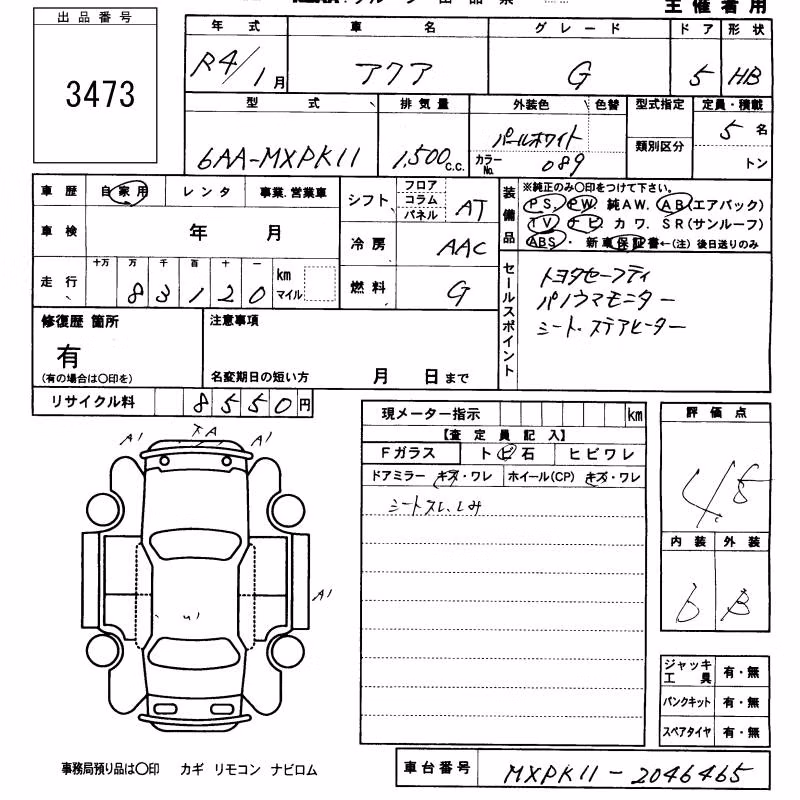 主催者用
出品番号
3473
年式 車名 グレード ドア 形状
R4/1月 アクア G 5 HB
型式 排気量 外装色 色替 型式指定 定員・積載
6AA-MXPK11 1,500c.c. パールホワイト カラーNo. 089 類別区分 5名 トン
車歴 自家用 レンタ 事業.営業車
シフト フロア コラム パネル AT
装備品 ※純正のみ〇印をつけて下さい。
PS. PW. 純AW. AB(エアバック)
TV ナビ カワ. SR(サンルーフ)
ABS・新車保証書←(注) 後日送りのみ
車検 年 月
冷房 AAC
走行 十万 万 千 百 十 一
83120 km マイル
燃料 G
セールスポイント
トヨタセーフティ
パノラマモニター
シート・ステアヒーター
修復歴 箇所
有
(有の場合は〇印を)
注意事項
名変期日の短い方 月 日まで
リサイクル料 8550円
現メーター指示 km
【査定員記入】
Fガラス トビ石 ヒビワレ
ドアミラー キズ・ワレ ホイール(CP) キズ・ワレ
シートスレ、シミ
評価点
4.5
内装 外装
b B
A1 A1
A1
U1
ジャッキ工具 有・無
パンクキット 有・無
スペアタイヤ 有・無
事務局預り品は〇印 カギ リモコン ナビロム
車台番号 MXPK11-2046465